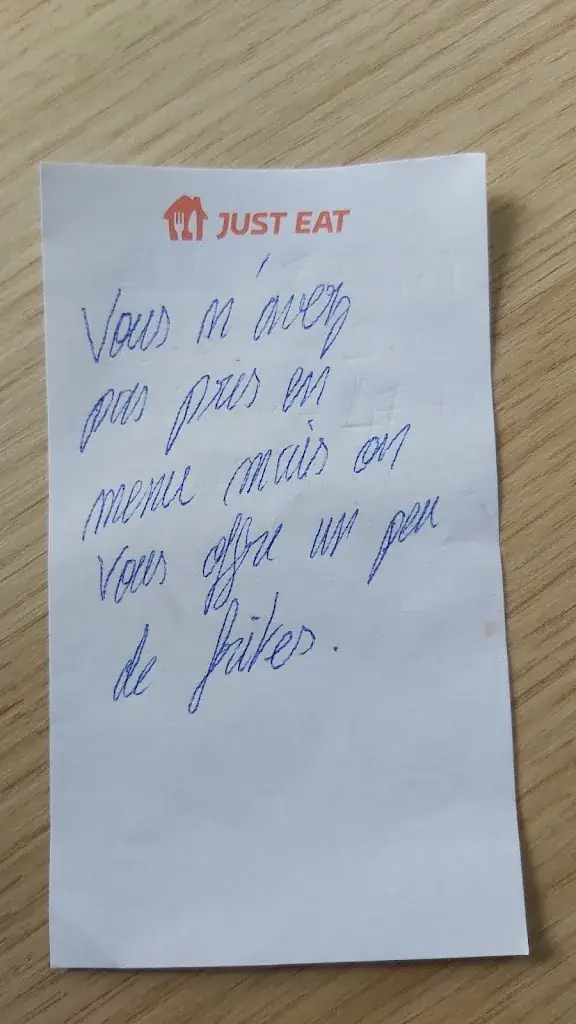 JUST EAT
Vous n'avez
pas pris en
menu mais on
vous offre un peu
de frites.